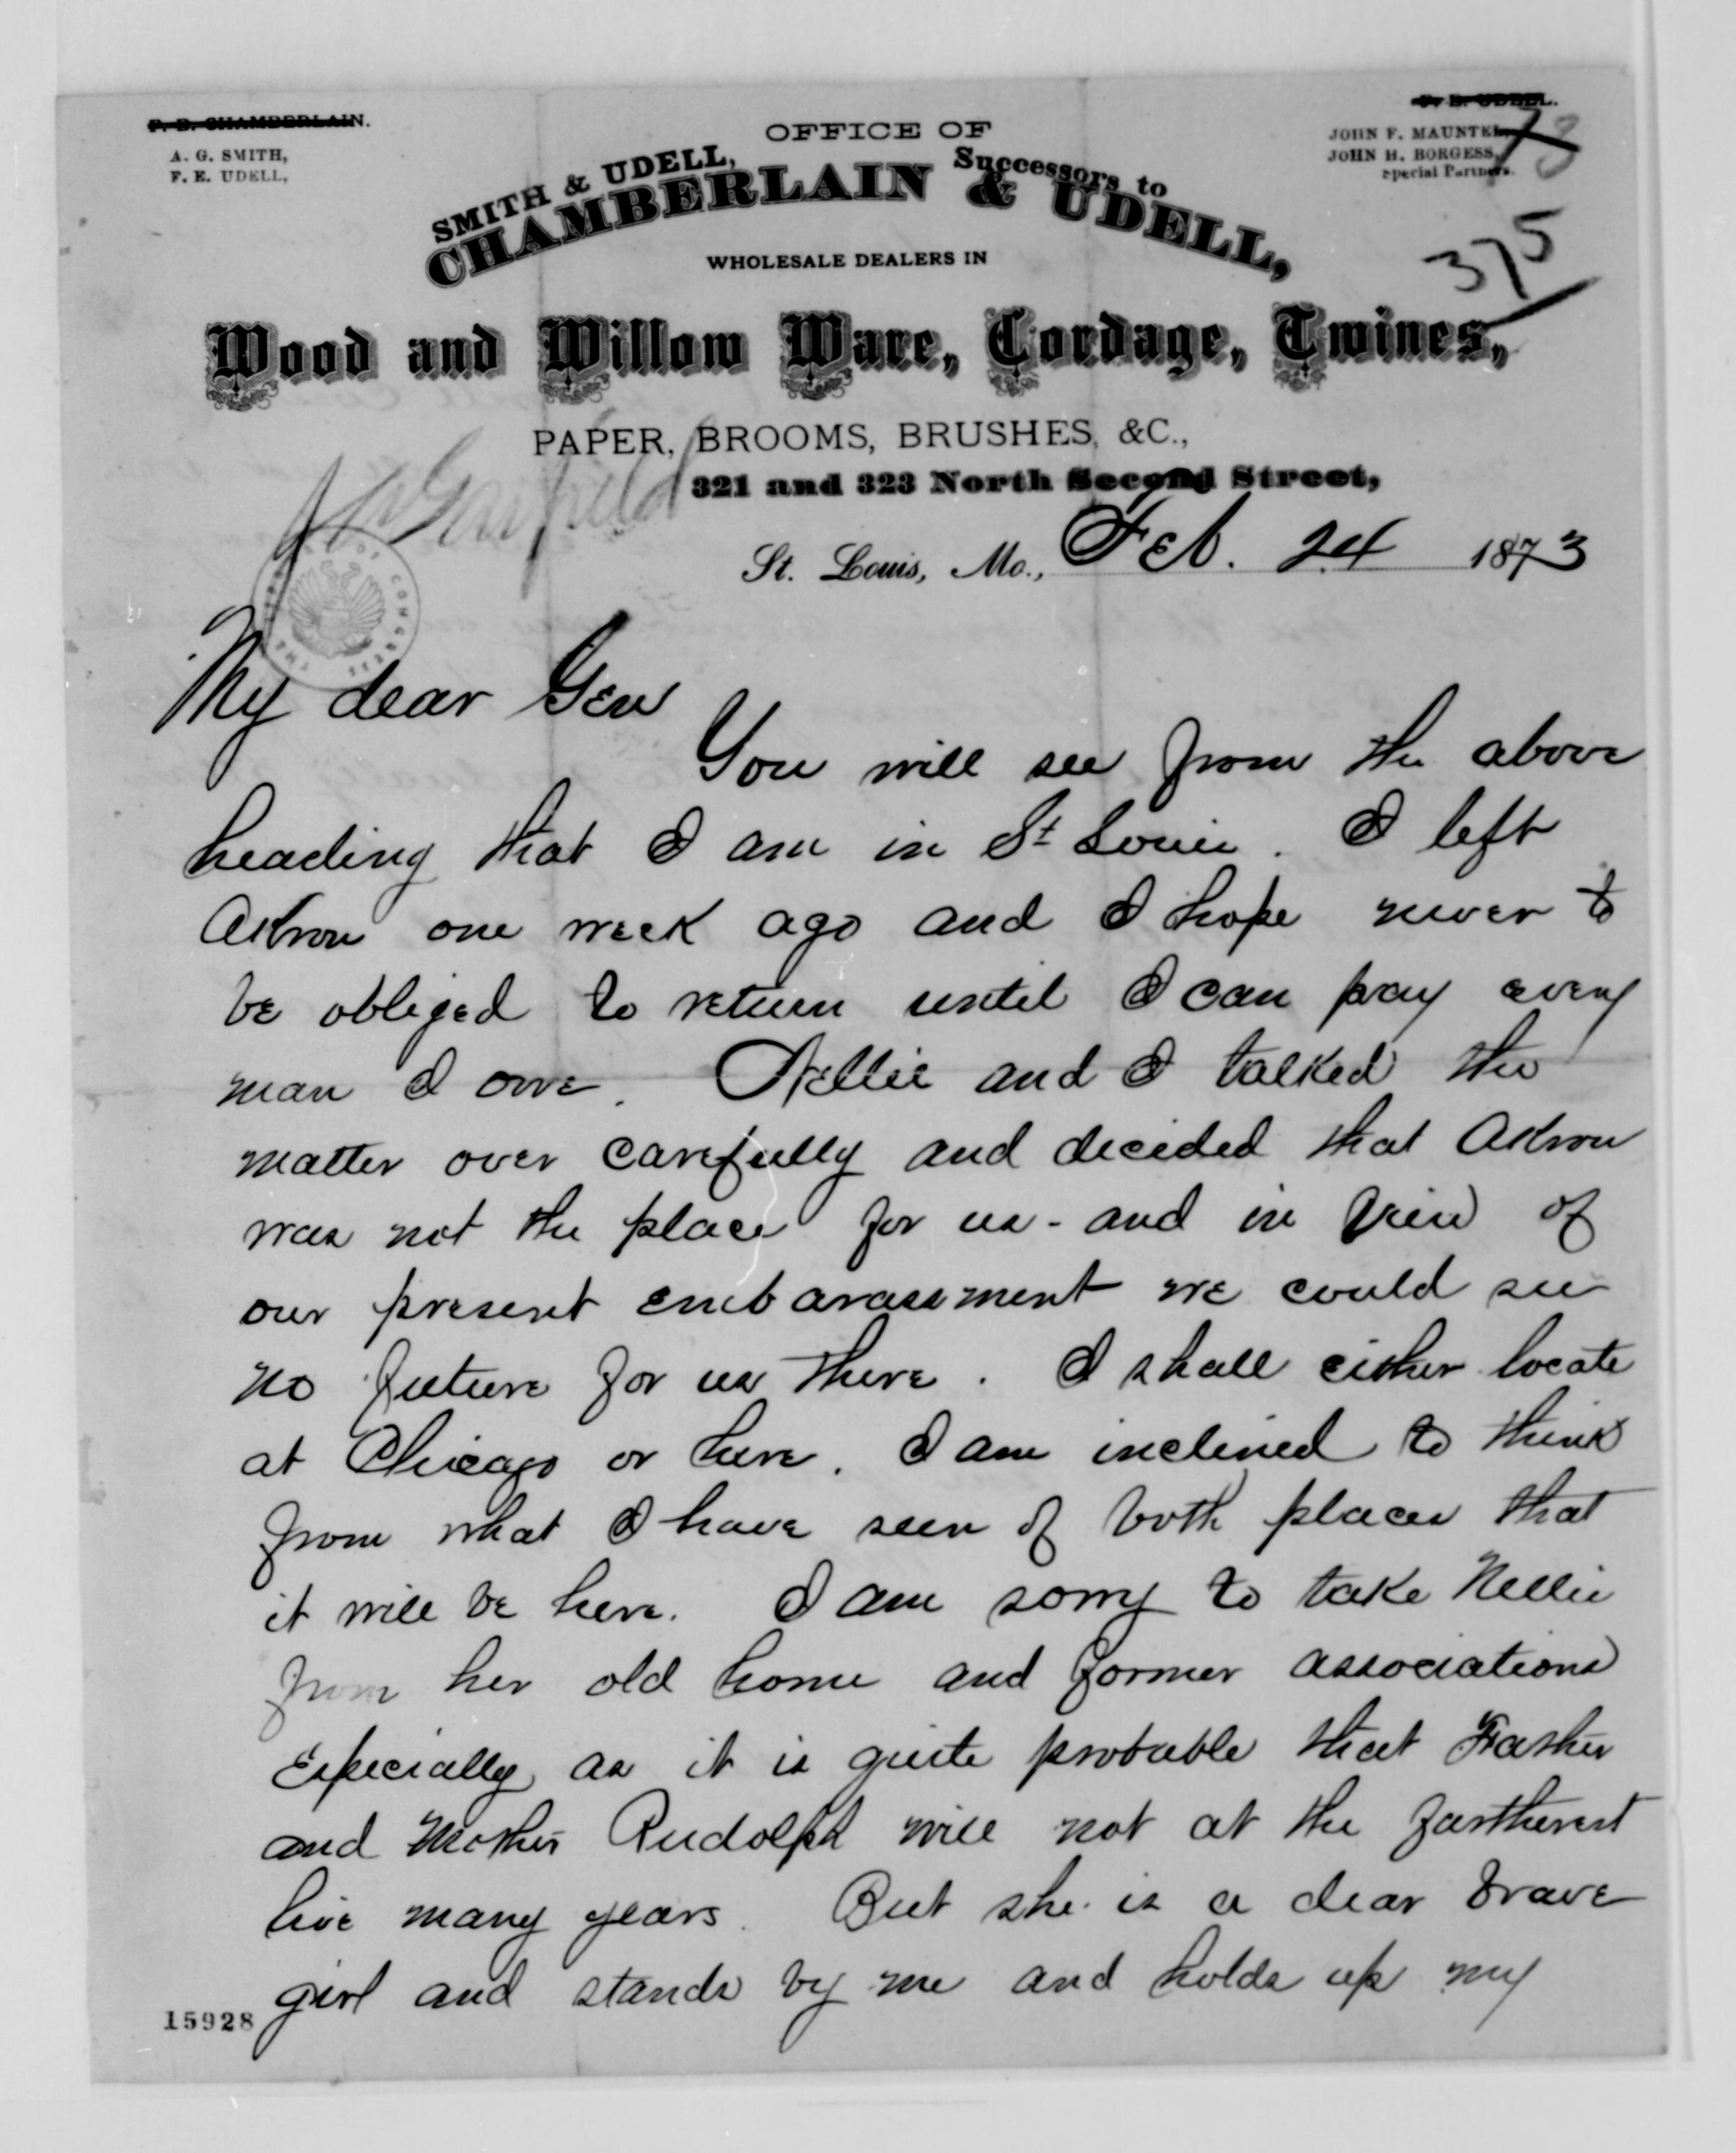 F. B. CHAMBERLAIN.
A. G. SMITH,
F. E. UDELL,
UDELL.
JOHN F. MAUNTEL
JOHN H. BORGESS,
Special Partners.
78
375
OFFICE OF
SMITH & UDELL, Successors to
CHAMBERLAIN & UDELL,
WHOLESALE DEALERS IN
Wood and Willow Ware, Cordage, Twines,
PAPER, BROOMS, BRUSHES, &C.,
321 and 323 North Second Street,
J A Garfield
St. Louis, Mo., Feb. 24 1873
THE LIBRARY OF CONGRESS
My dear Gen
You will see from the above
heading that I am in St Louis. I left
Akron one week ago and I hope never to
be obliged to return until I can pay every
man I owe. Nellie and I talked the
matter over carefully and decided that Akron
was not the place for us - and in view of
our present embarassment we could see
no future for us there. I shall either locate
at Chicago or here. I am inclined to think
from what I have seen of both places that
it will be here. I am sorry to take Nellie
from her old home and former associations
especially as it is quite probable that Father
and Mother Rudolph will not at the fartherest
live many years. But she is a dear brave
girl and stands by me and holds up my
15928